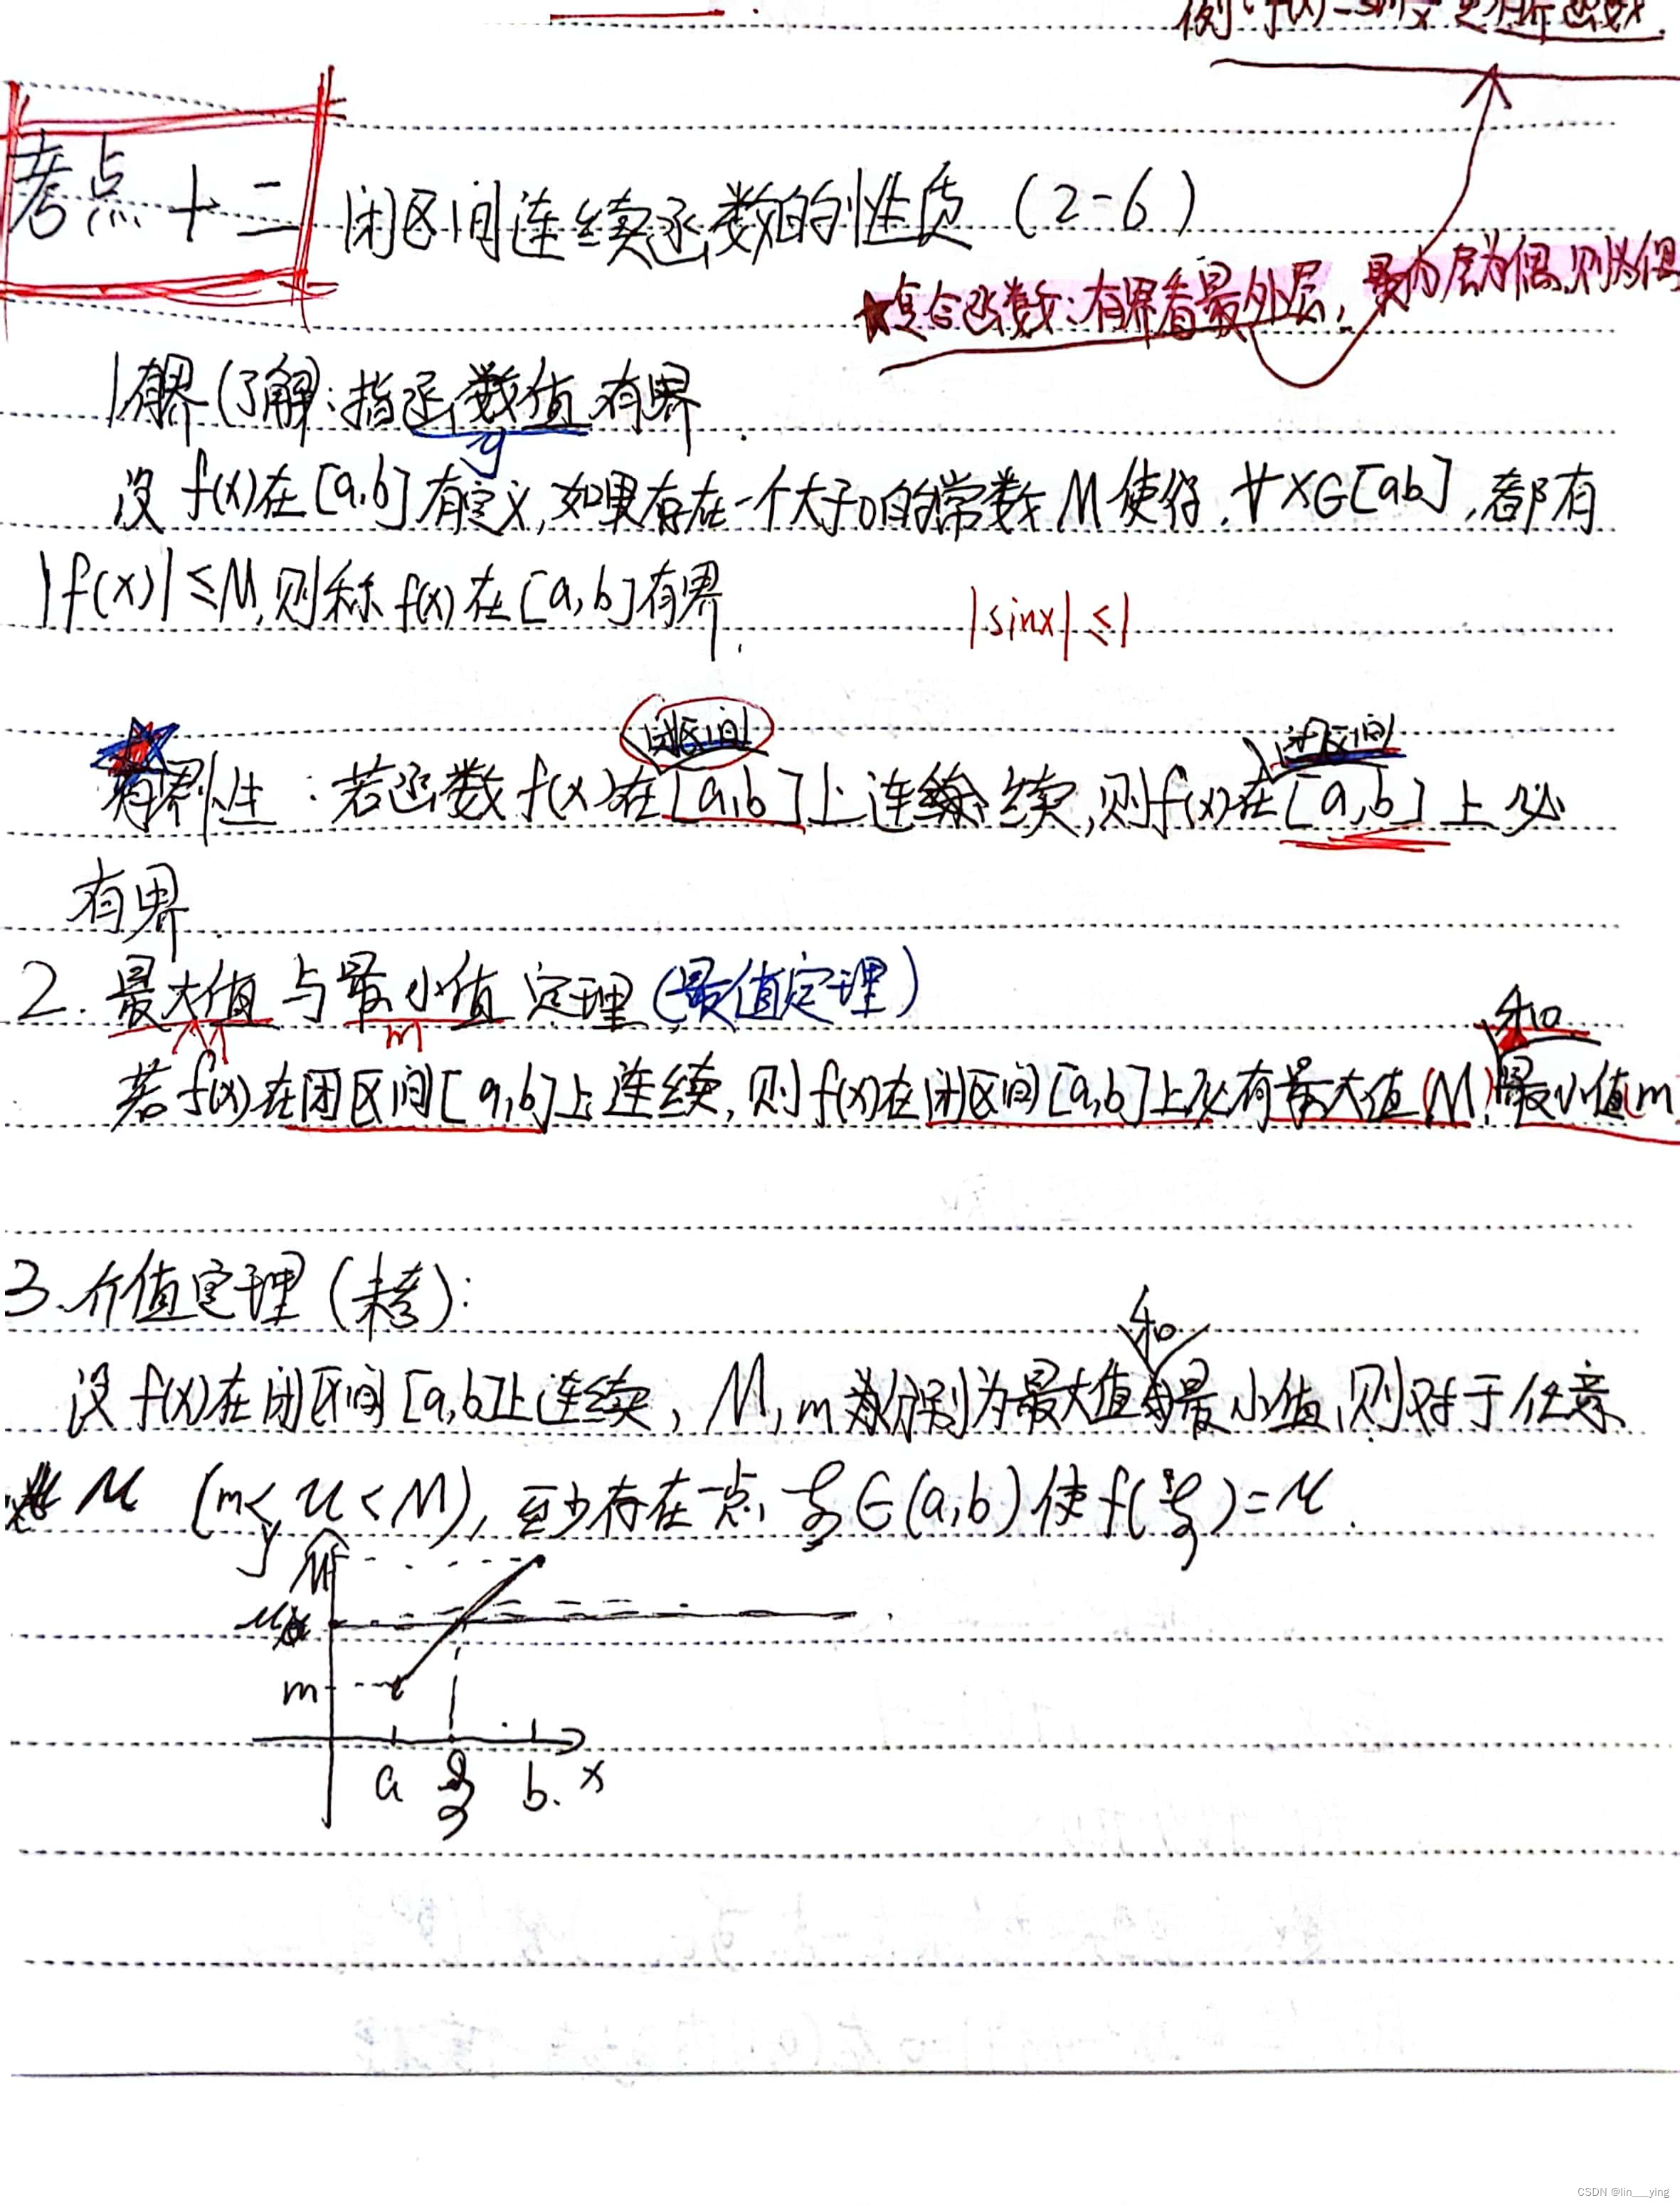 考点十二 闭区间连续函数的性质 (2-6)
★复合函数:有界看最外层,最内层为偶则为偶
1有界(了解):指函数值有界
y
设 f(x)在[a,b]有定义,如果存在一个大于0的常数M使得,∀x∈[ab],都有
|f(x)|≤M,则称f(x)在[a,b]有界.
|sinx|≤1
闭区间 闭区间
有界性:若函数f(x)在[a,b]上连续,则f(x)在[a,b]上必
有界.
2.最大值与最小值定理(最值定理)
M m 和
若f(x)在闭区间[a,b]上连续,则f(x)在闭区间[a,b]上必有最大值(M)最小值(m
3.介值定理(未考):
和
设f(x)在闭区间[a,b]上连续,M,m分别为最大值最小值,则对于任意
μ (m<μ<M),至少存在一点ξ∈(a,b)使f(ξ)=μ.
y
M
μ
m
a ξ b. x
CSDN @lin___ying